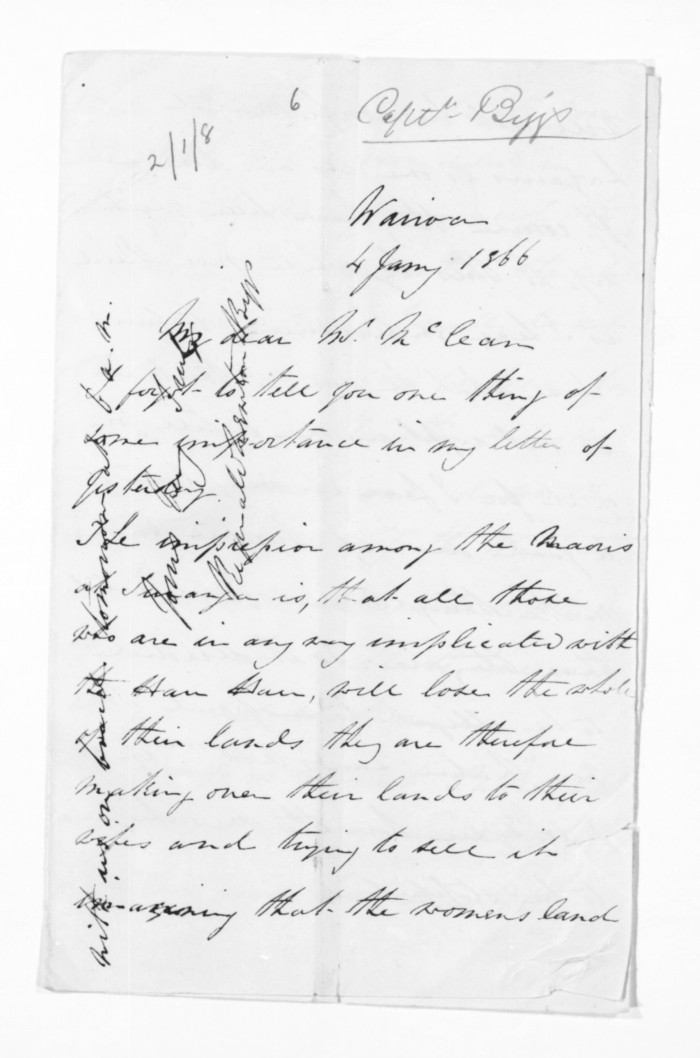 6
Captn Biggs
2/1/8
Wairoa
4 Jany 1866
My dear Mr McLean
I forgot to tell you one thing of
some importance in my letter of
yesterday.
The impression among the Maoris
at Turanga is, that all those
who are in any way implicated with
the Hau Hau, will lose the whole
of their lands they are therefore
making over their lands to their
wives and trying to sell it
imagining that the womens land
with us on board tomorrow at 8 a.m.
Yours very truly
Reginald Newton Biggs